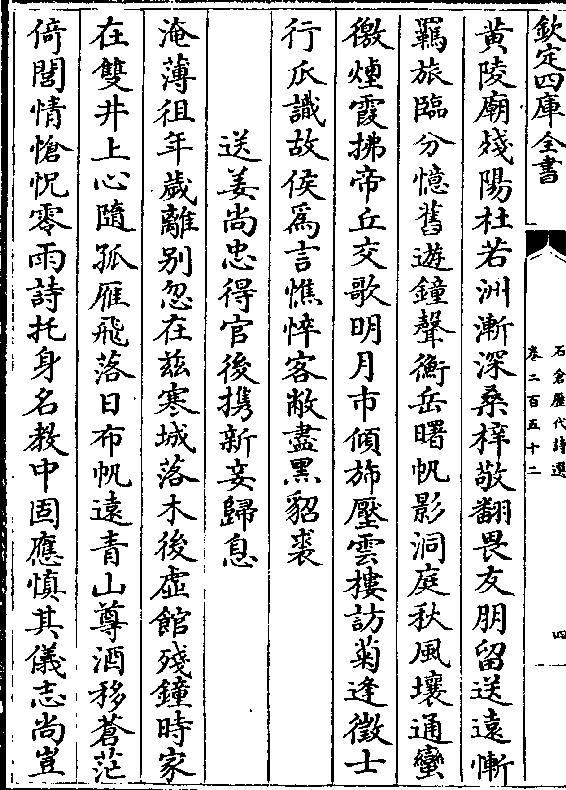 欽定四庫全書
石倉歷代詩選
卷二百五十二
四
黄陵廟殘陽杜若洲漸深桑梓敬翻畏友朋留送遠慚
羈旅臨分憶舊遊鐘聲衡岳曙帆影洞庭秋風壤通蠻
徼煙霞拂帝丘交歌明月市傾斾壓雲樓訪菊逢徵士
行瓜識故侯為言憔悴客敝盡黑貂裘
送姜尚忠得官後携新妾歸息
淹薄徂年歲離别忽在兹寒城落木後虚館殘鐘時家
在雙井上心隨孤雁飛落日布帆遠青山尊酒移蒼茫
倚閭情愴怳零雨詩托身名教中固應慎其儀志尚豈